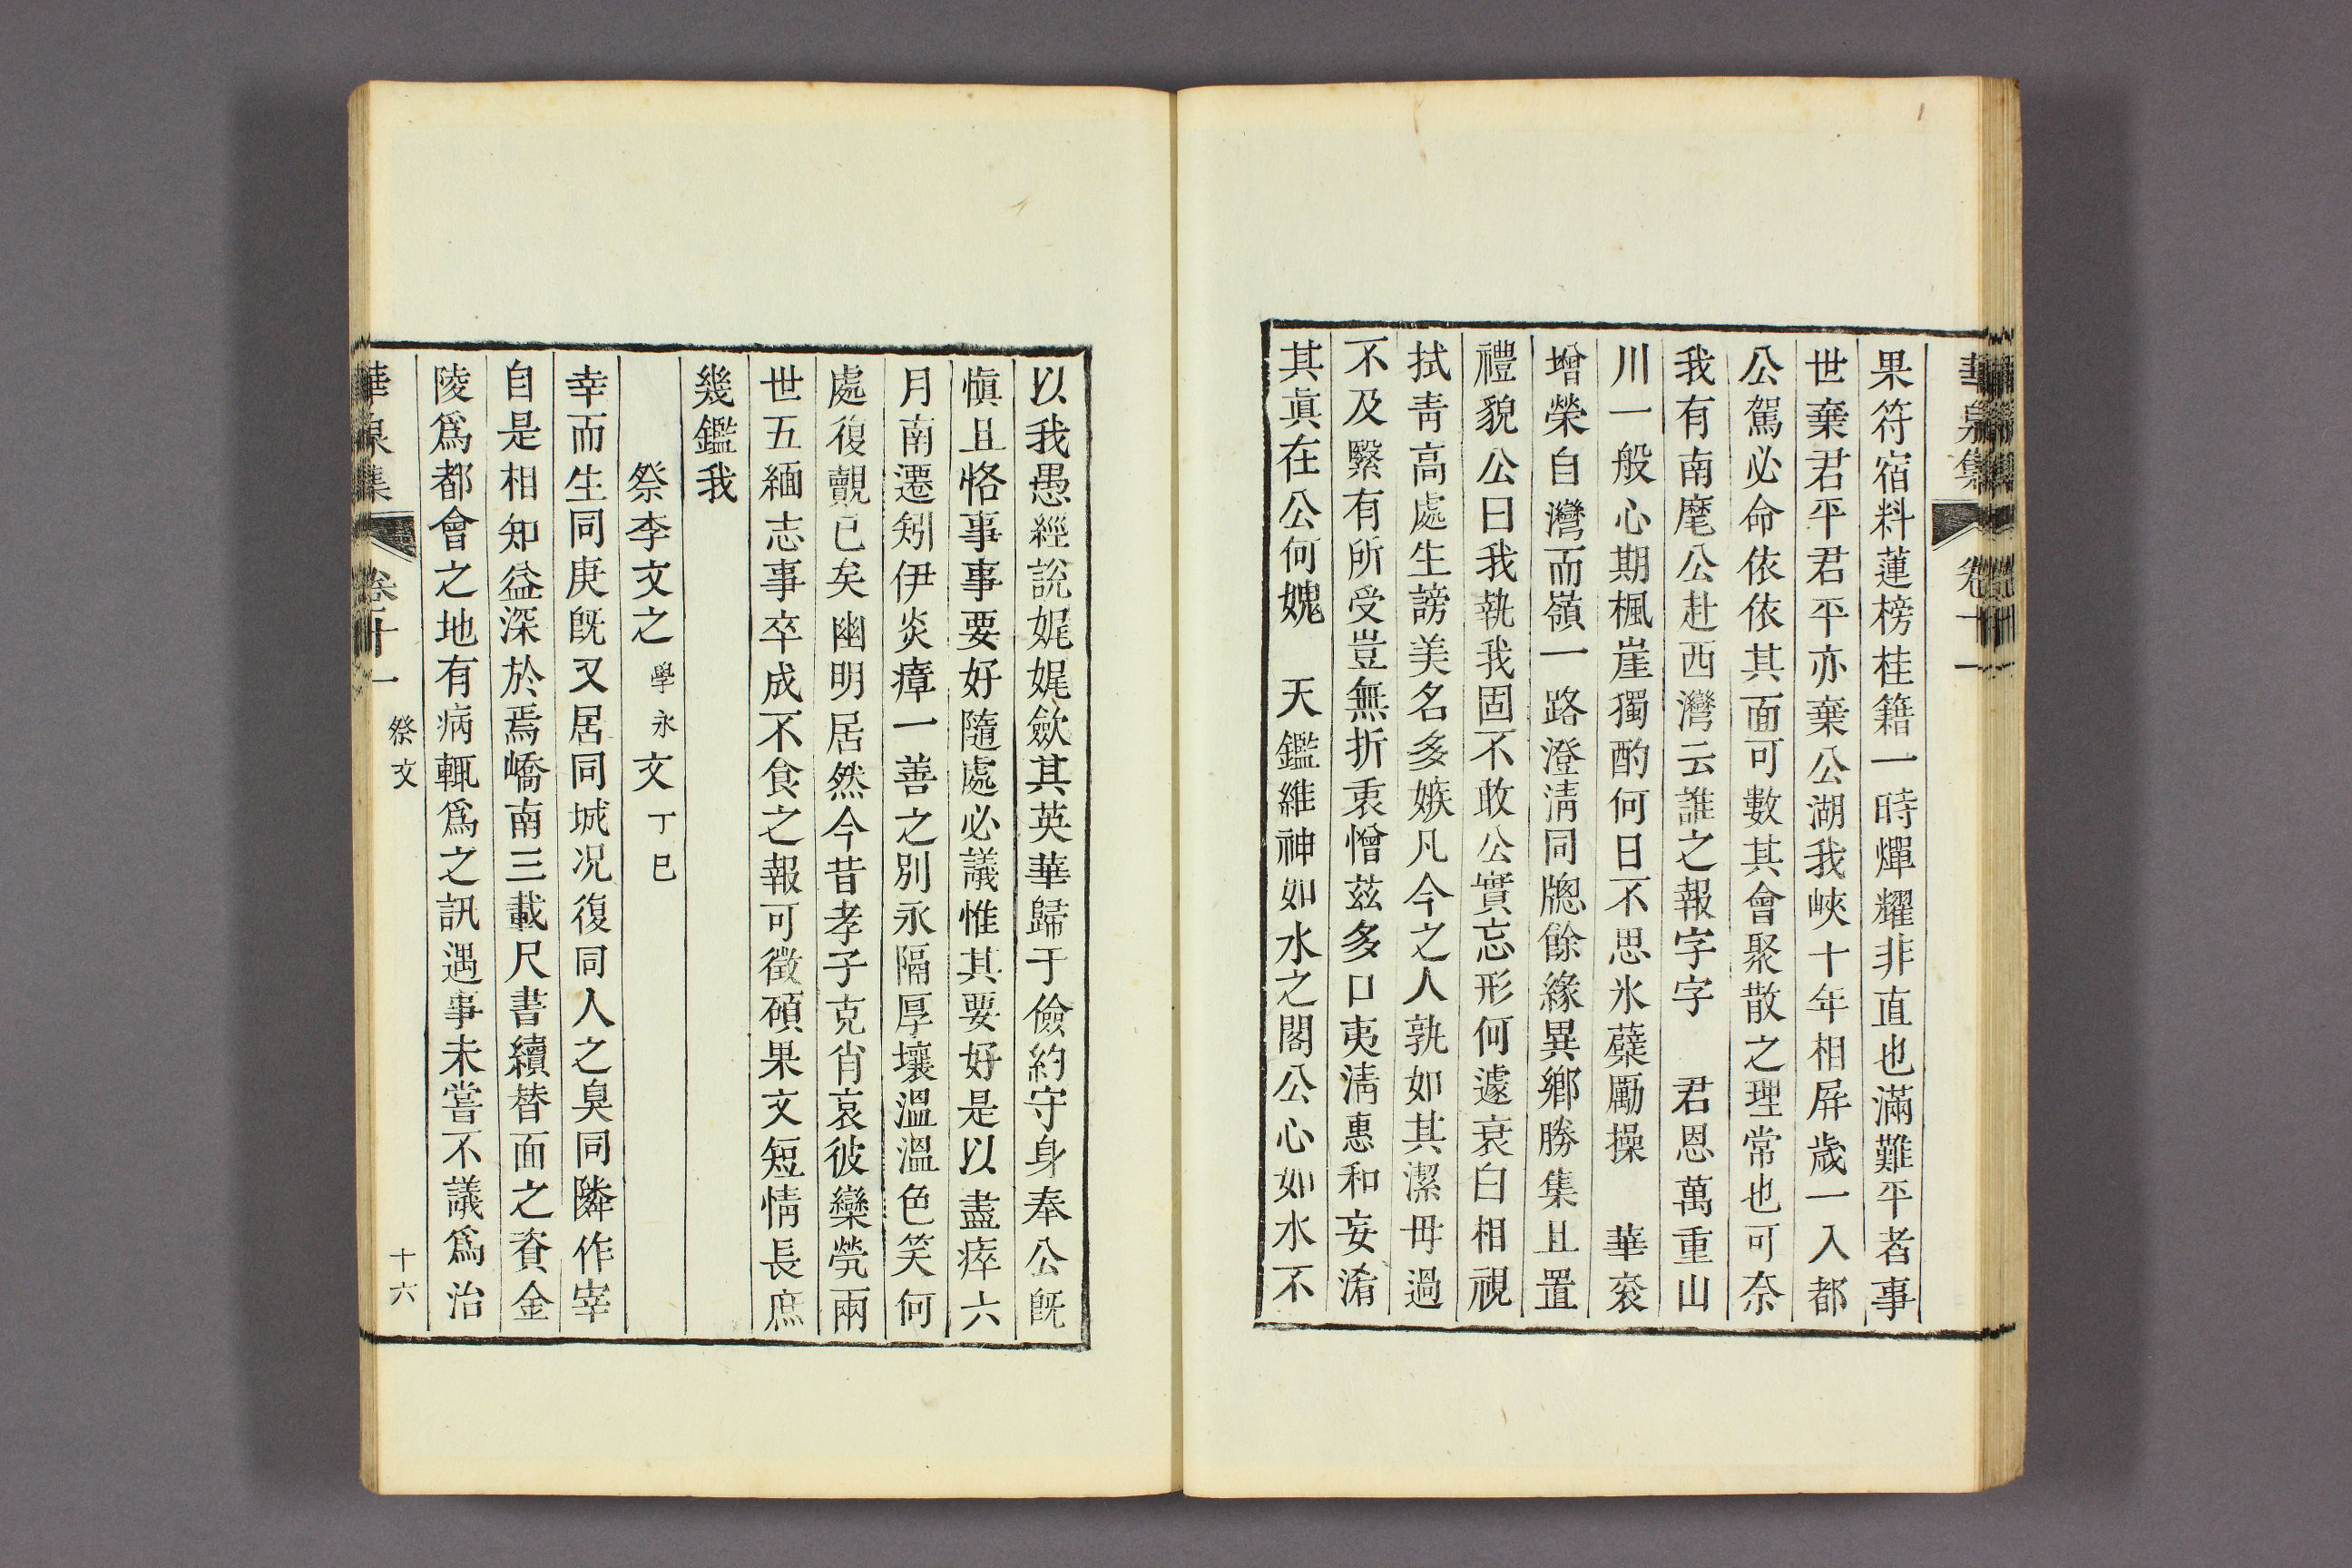 果符宿料蓮榜桂籍一時燀耀非直也滿難平者事
世棄君平君平亦棄公湖我峽十年相屏歲一入都
公駕必命依依其面可數其會聚散之理常也可奈
我有南麾公赴西灣云誰之報字字　君恩萬重山
川一般心期楓崖獨酌何日不思氷蘗勵操　華衮
增榮自灣而嶺一路澄淸同牕餘緣異鄕勝集且置
禮貌公曰我執我固不敢公實忘形何遽衰白相視
拭靑高處生謗美名多嫉凡今之人孰如其潔毋過
不及繄有所受豈無折衷憎玆多口夷淸惠和妄淆
其眞在公何媿　天鑑維神如水之閣公心如水不
以我愚經說娓娓斂其英華歸于儉約守身奉公旣
愼且恪事事要好隨處必議惟其要好是以盡瘁六
月南遷矧伊炎瘴一善之別永隔厚壤溫溫色笑何
處復覿已矣幽明居然今昔孝子克肖哀彼欒煢兩
世五緬志事卒成不食之報可徵碩果文短情長庶
幾鑑我
祭李文之學永文丁巳
幸而生同庚旣又居同城况復同人之臭同隣作宰
自是相知益深於焉嶠南三載尺書續替面之資金
陵爲都會之地有病輒爲之訊遇事未嘗不議爲治
華泉集　卷十一　祭文　十六